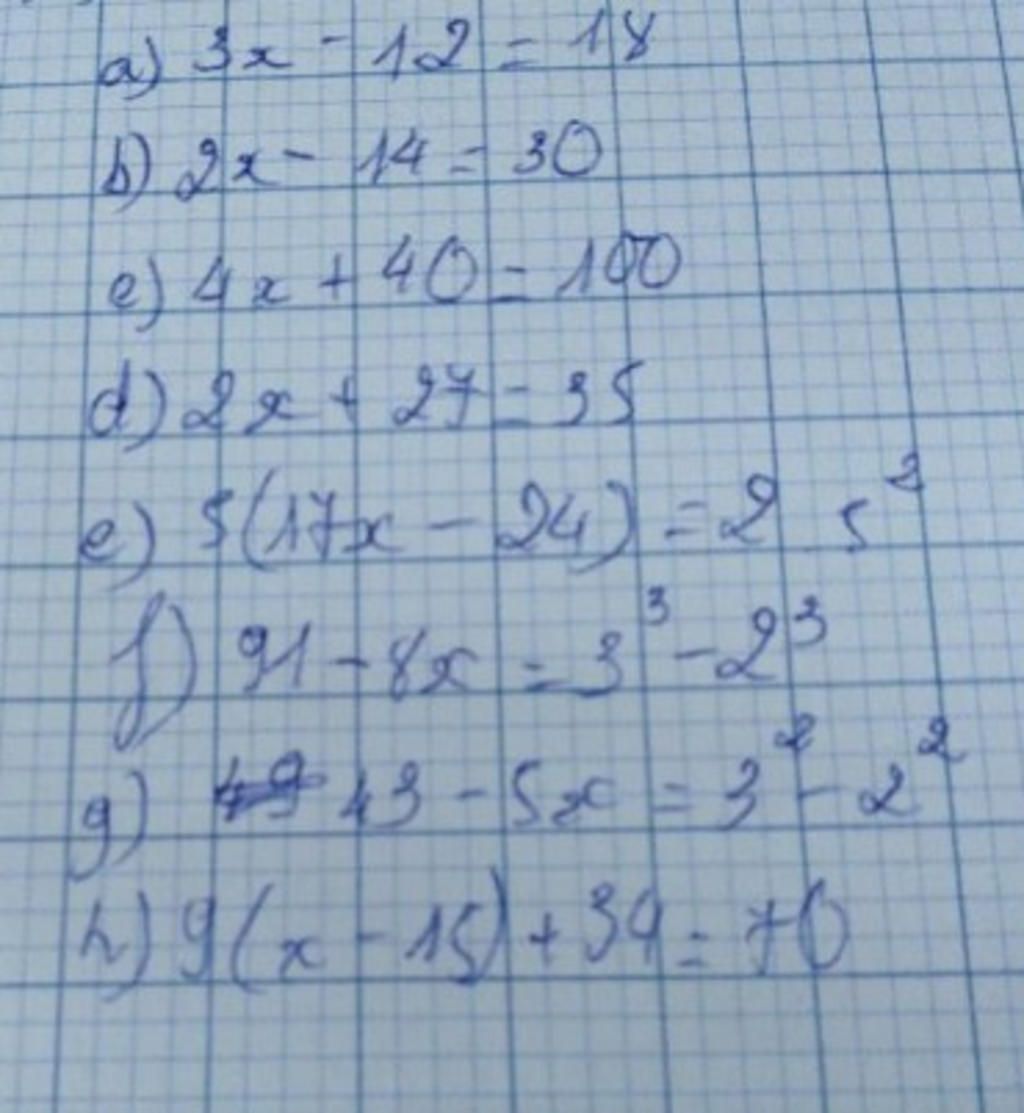 a) 3x - 12 = 18
b) 2x - 14 = 30
c) 4x + 40 = 100
d) 2x + 27 = 35
e) 5(17x - 24) = 2 5²
f) 91 - 8x = 3³ - 2³
g) 43 - 5x = 3² - 2²
h) 9(x - 15) + 34 = 70